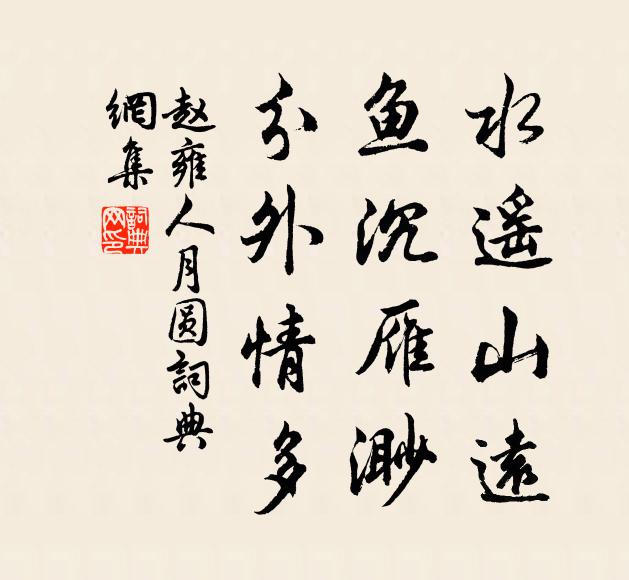 水遥山遠
鱼沉雁渺
分外情多
赵雍人月圆詞典
網集
詞典
网印